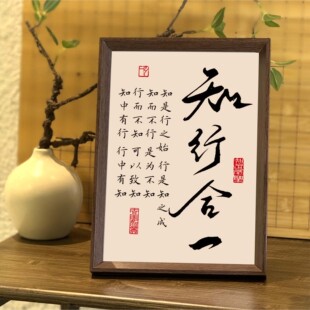 知行合一
知是行之始 行是知之成
知而不行 是为不知
行而不知 可以致知
知中有行 行中有知